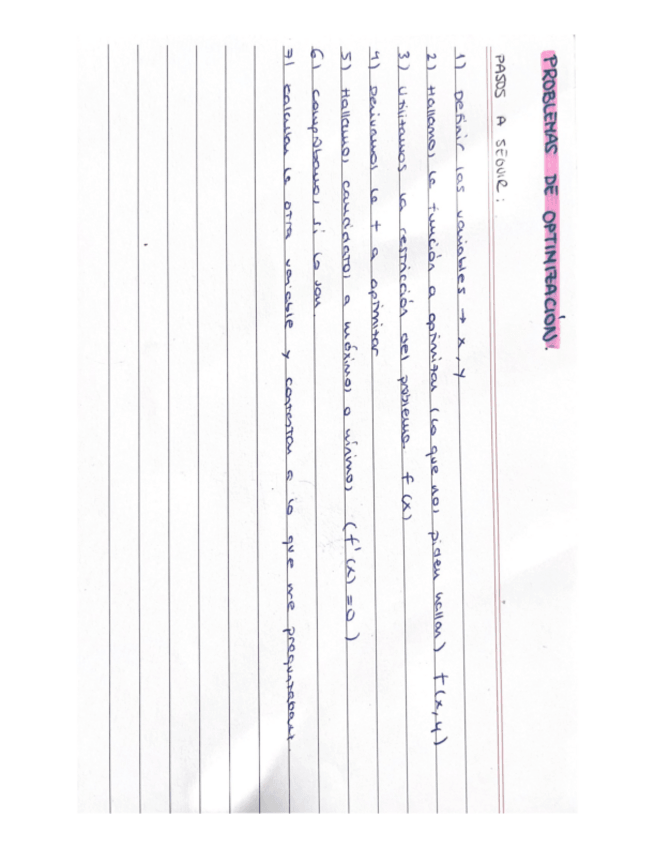 PROBLEMAS DE OPTIMIZACIÓN.
PASOS A SEGUIR:
1) Definir las variables → x, y
2) Hallamos la función a optimizar (lo que nos piden hallar) f(x,y)
3) Utilizamos la restricción del problema f(x)
4) Derivamos la f a optimizar
5) Hallamos candidatos a máximos o mínimos (f'(x)=0)
6) comprobamos si lo son.
7) calculan la otra variable y contestan a lo que me preguntaban.